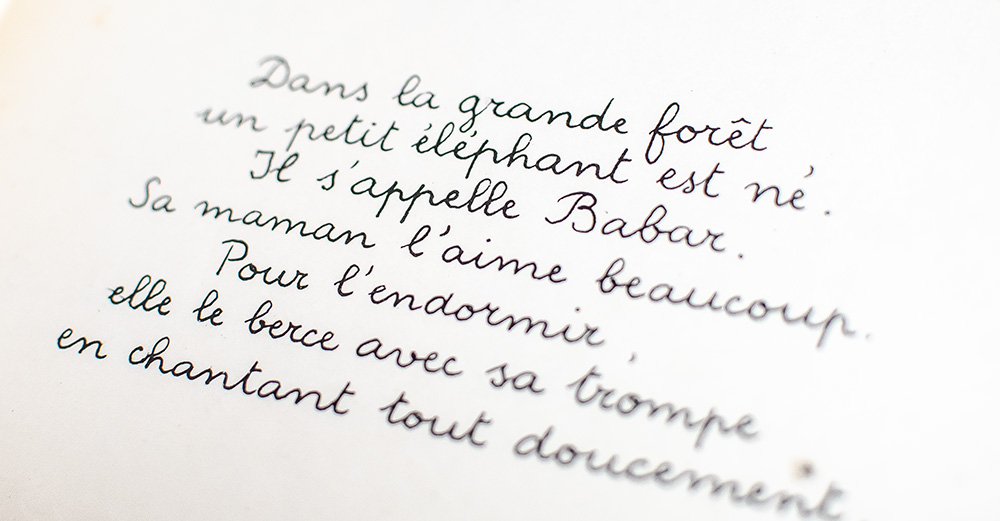 Dans la grande forêt
un petit éléphant est né.
Il s'appelle Babar.
Sa maman l'aime beaucoup.
Pour l'endormir,
elle le berce avec sa trompe
en chantant tout doucement.